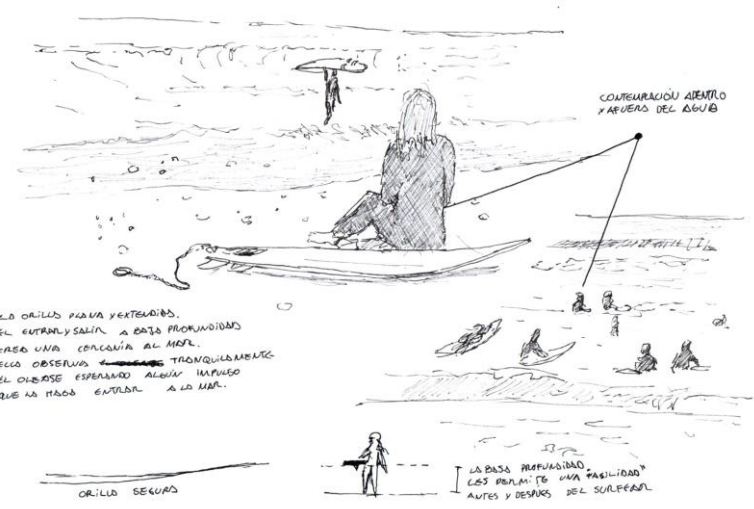 CONTEMPLACIÓN ADENTRO
Y AFUERA DEL AGUA
LA ORILLA PLANA Y EXTENDIDA.
EL ENTRAR Y SALIR A BAJA PROFUNDIDAD
CREA UNA CERCANÍA AL MAR.
ELLA OBSERVA TRANQUILAMENTE
EL OLEAJE ESPERANDO ALGÚN IMPULSO
QUE LA HAGA ENTRAR A LA MAR.
ORILLA SEGURA
LA BAJA PROFUNDIDAD
LES PERMITE UNA "FASILIDAD"
ANTES Y DESPUES DEL SURFEAR